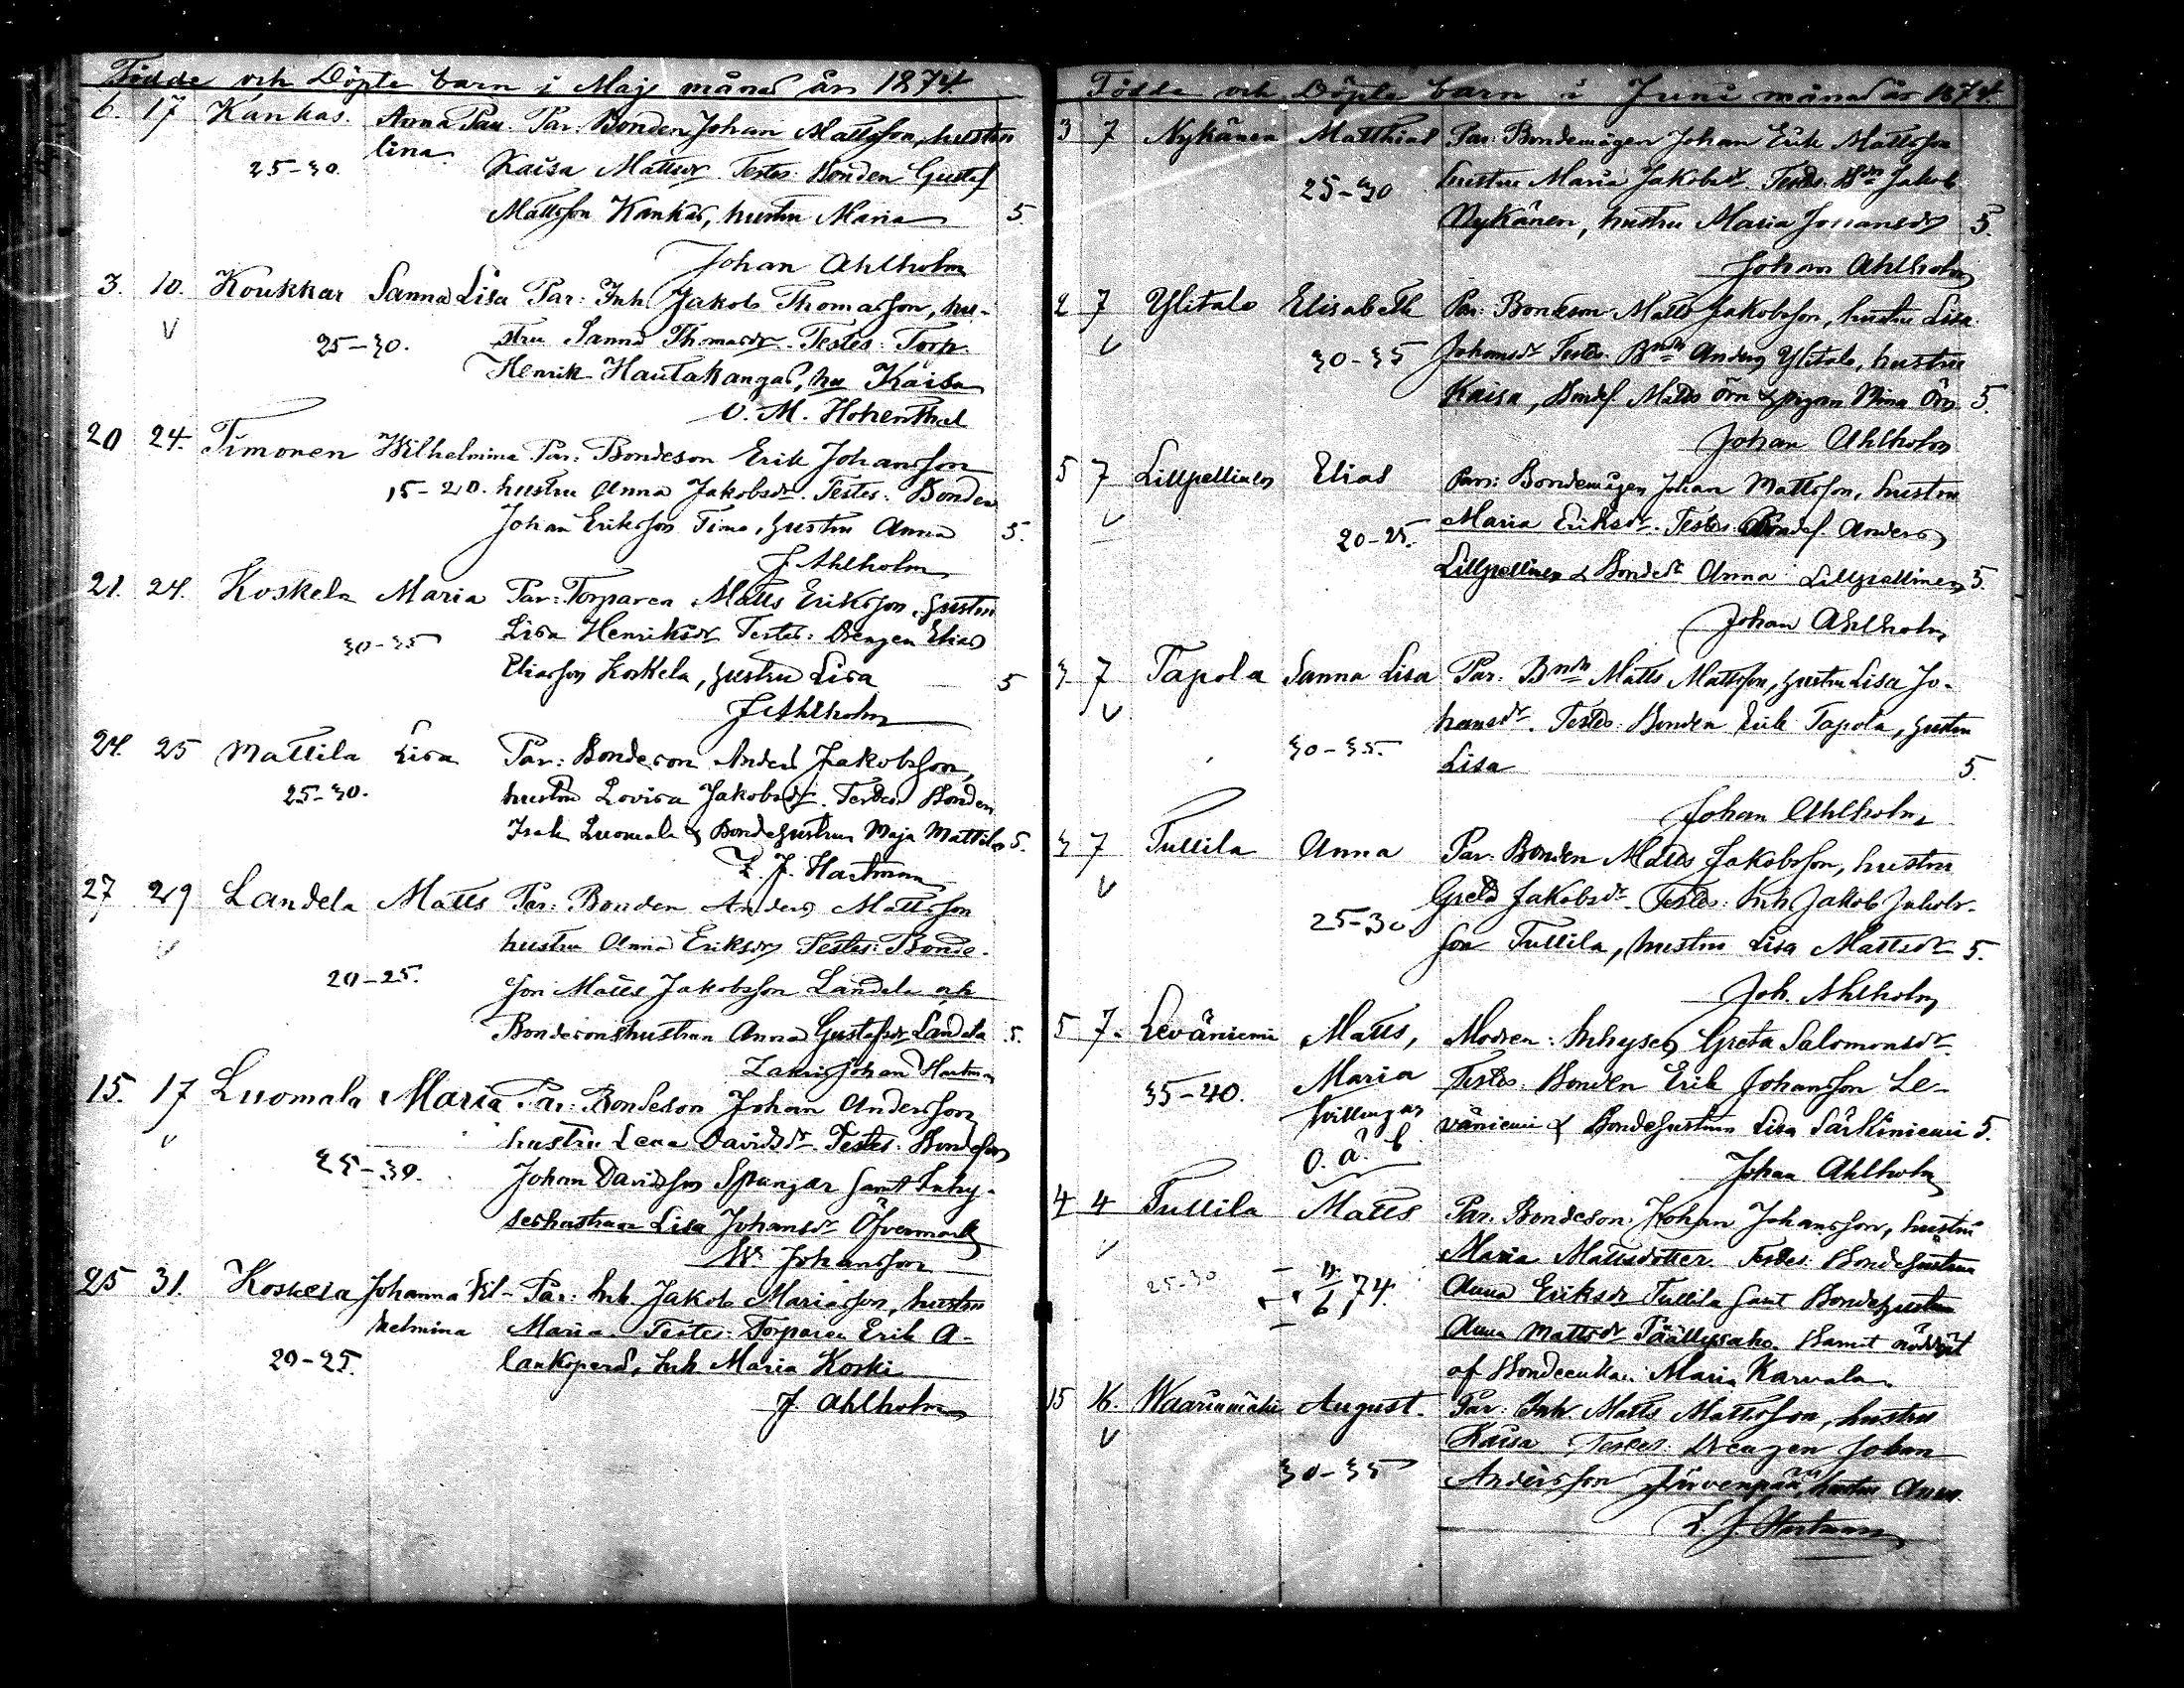 Födde och Döpte barn i Maji månad år 1874.
6. 17 Kankas. Anna Pau- Par: Bonden Johan Mattsson, hustru
lina.
25-30. Kaisa Mattsdr. Testes: Bonden Gustaf
Mattsson Kankas, hustru Maria 5.
Johan Ahlholm
3. 10. Koukkar Sanna Lisa Par: Inh. Jakob Thomasson, hu-
V 25-30. stru Sanna Thomasdr. Testes: Torp.
Henrik Hautakangas, hu Kaisa
O. M. Hohenthal
20 24. Timonen Wilhelmina Par: Bondeson Erik Johansson
15-20. hustru Anna Jakobsdr. Testes: Bonden
Johan Eriksson Timo, hustru Anna 5.
J. Ahlholm
21. 24. Koskela Maria Par: Torparen Matts Eriksson, hustru
30-35 Lisa Henriksdr Testes: Drengen Elias
Eliasson Koskela, hustru Lisa 5
J. Ahlholm
24. 25 Mattila Lisa Par: Bondeson Anders Jakobsson,
25-30. hustru Lovisa Jakobsdr. Testes Bonden
Isak Luomala & Bondehustrun Maja Mattila 5.
Z. J. Hartman
27 29 Landela Matts Par: Bonden Anders Mattsson
V hustru Anna Eriksdr Testes: Bonde-
20-25. son Matts Jakobsson Landela och
Bondesonshustrun Anna Gustafsdr Landela 5.
Zakris Johan Hartman
15. 17 Luomala Maria Par: Bondeson Johan Andersson
V hustru Lena Davidsdr. Testes: Bondeson
25-30. Johan Davidsson Spangar samt Inhy-
seshustrun Lisa Johansdr Öfvermark
W. Johansson
25 31. Koskela Johanna Vil- Par: Inh. Jakob Mariasson, hustru
helmina Maria. Testes: Torparen Erik A-
20-25. lankoperä, Inh. Maria Koski
J. Ahlholm
Födde och Döpte barn i Juni månad år 1874.
3 7 Nykänen Matthias Par: Bondemågen Johan Erik Mattsson
25-30 hustru Maria Jakobsdr. Testes: Bdn Jakob
Nykänen, hustru Maria Johansdr 5.
Johan Ahlholm
2 7 Ylitalo Elisabeth Par: Bondeson Matts Jakobsson, hustru Lisa
V 30-35 Johansdr Testes: Bndn Anders Ylitalo, hustru
Kaisa, Bondes. Matts Örn & pigan Mina Örn 5.
Johan Ahlholm
5 7 Lillpellinen Elias Par: Bondemågen Johan Mattsson, hustru
V Maria Eriksdr. Testes: Bondes. Anders
20-25. Lillpellinen & Bondedr Anna Lillpellinen 5.
Johan Ahlholm
3 7 Tapola Sanna Lisa Par: Bndn Matts Mattsson, hustru Lisa Jo-
V hansdr. Testes: Bonden Erik Tapola, hustru
30-35. Lisa 5.
Johan Ahlholm
3 7 Tullila Anna Par: Bonden Matts Jakobsson, hustru
V Greta Jakobsdr. Testes: Inh. Jakob Jakobs-
25-30 son Tullila, hustru Lisa Mattsdr 5.
Joh. Ahlholm
5 7. Leväniemi Matts, Modren: Inhyses Greta Salomonsdr.
35-40. Maria Testes: Bonden Erik Johansson Le-
tvillingar väniemi & Bondehustrun Lisa Särkiniemi 5.
o. ä. b. Johan Ahlholm
4 4 Tullila Matts Par. Bondeson Johan Johansson, hustru
V Maria Mattsdotter. Testes: Bondehustrun
25-30 74. Anna Eriksdr Tullila samt Bondehustrun
Anna Mattsdr Päällysaho. Barnet nöddöpt
af Bondeenkan Maria Karvala.
15 16. Waarinmäki August. Par: Inh. Matts Mattsson, hustru
V Kaisa Testes: Drengen Johan
30-35 Andersson Järvenpää, hustru Anna
Z. J. Hartman